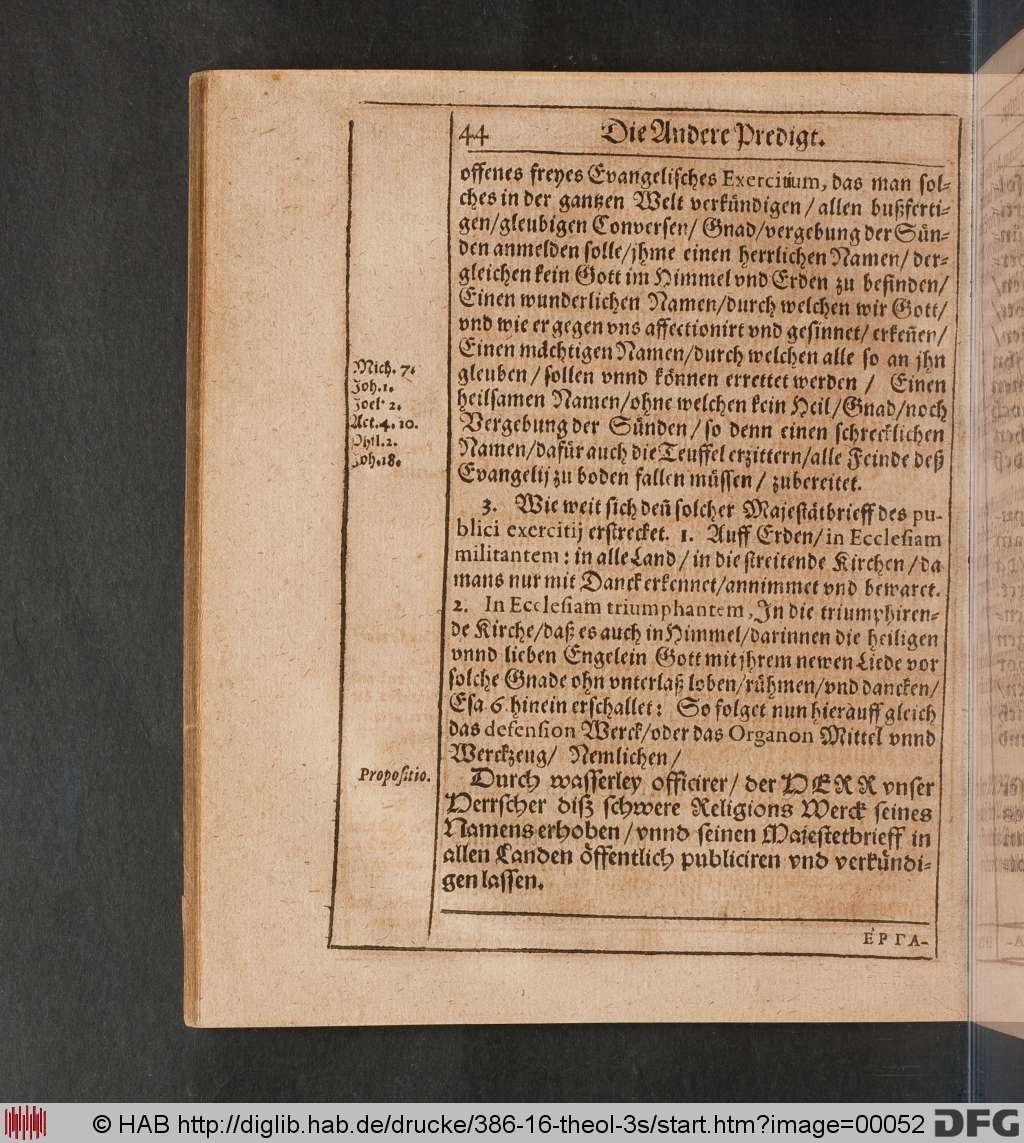 44 Die Andere Predigt.
offenes freyes Evangelisches Exercitium, das man sol-
ches in der gantzen Welt verkündigen / allen bußferti-
gen/gleubigen Conversen/ Gnad/vergebung der Sün-
den anmelden solle/jhme einen herrlichen Namen/ der-
gleichen kein Gott im Himmel vnd Erden zu befinden/
Einen wunderlichen Namen/durch welchen wir Gott/
vnd wie er gegen vns affectionirt vnd gesinnet/ erkeñen/
Einen mächtigen Namen/durch welchen alle so an jhn
gleuben / sollen vnnd können errettet werden / Einen
heilsamen Namen/ohne welchen kein Heil/Gnad/noch
Vergebung der Sünden/ so denn einen schrecklichen
Namen/dafür auch die Teuffel erzittern/alle Feinde deß
Evangelij zu boden fallen müssen / zubereitet.
Mich. 7.
Joh. 1.
Joel 2.
Act. 4. 10.
Phil. 2.
Joh. 18.
3. Wie weit sich deñ solcher Majestätbrieff des pu-
blici exercitij erstrecket. 1. Auff Erden/ in Ecclesiam
militantem: in alle Land/ in die streitende Kirchen/ da
mans nur mit Danck erkennet/annimmet vnd bewaret.
2. In Ecclesiam triumphantem, In die triumphiren-
de Kirche/daß es auch in Himmel/darinnen die heiligen
vnnd lieben Engelein Gott mit jhrem newen Liede vor
solche Gnade ohn vnterlaß loben/rühmen/vnd dancken/
Esa. 6. hinein erschallet: So folget nun hierauff gleich
das defension Werck/oder das Organon Mittel vnnd
Werckzeug/ Nemlichen/
Propositio.
Durch wasserley officirer/ der HERR vnser
Herrscher diß schwere Religions Werck seines
Namens erhoben/ vnnd seinen Majestetbrieff in
allen Landen öffentlich publiciren vnd verkündi-
gen lassen.
ἘΡΓΑ-
© HAB http://diglib.hab.de/drucke/386-16-theol-3s/start.htm?image=00052 DFG